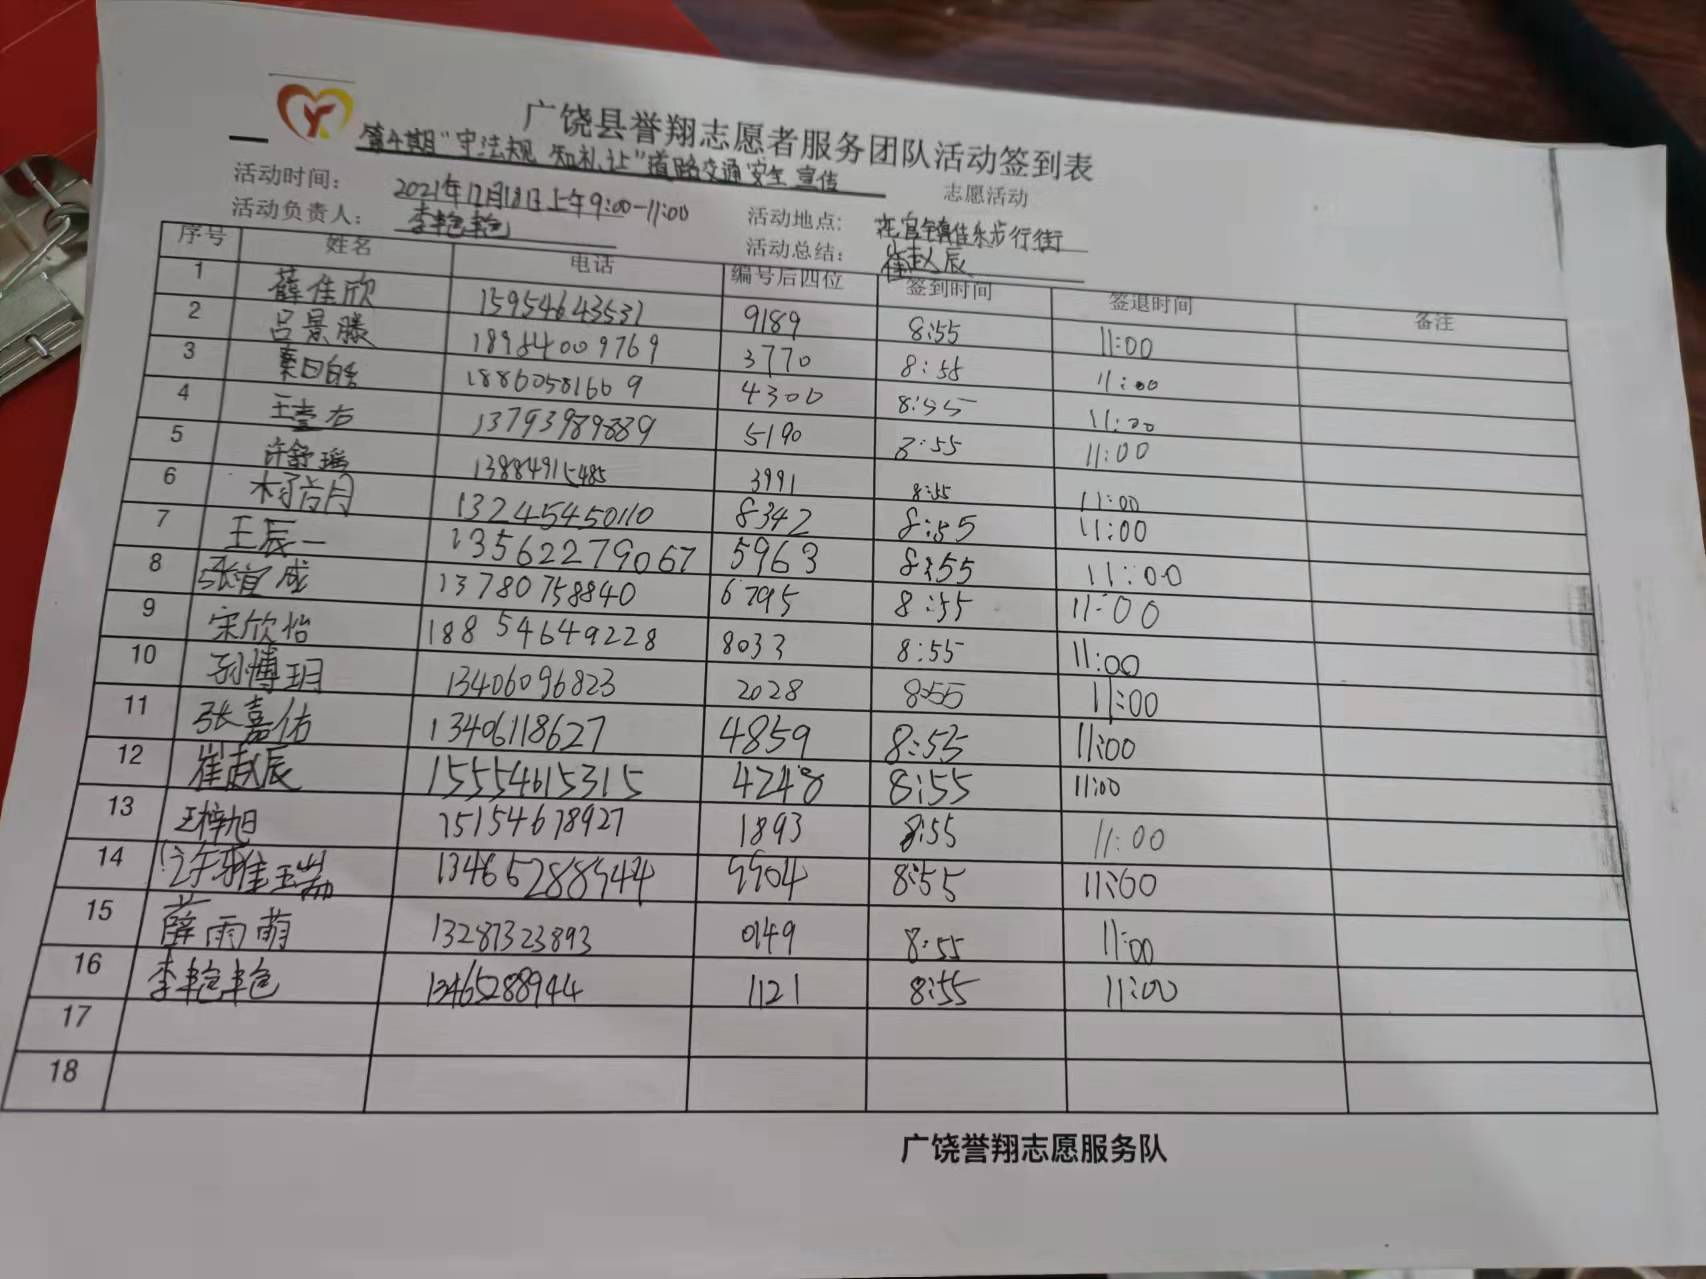 广饶县誉翔志愿者服务团队活动签到表
"守法规 知礼让"道路交通安全宣传 志愿活动
活动时间: 2021年12月18日上午9:00-11:00 活动地点: 花官镇佳乐步行街
活动负责人: 李艳艳 活动总结: 崔赵辰
序号 姓名 电话 编号后四位 签到时间 签退时间 备注
1 薛佳欣 15954643531 9189 8:55 11:00
2 吕景滕 18964009769 3770 8:55 11:00
3 18860581609 4300 8:55 11:00
4 王壹右 13793989889 5190 8:55 11:00
5 许舒瑶 13884915485 3991 8:55 11:00
6 13245450110 8342 8:55 11:00
7 王辰一 13562279067 5963 8:55 11:00
8 张宜成 13780758840 6795 8:55 11:00
9 宋欣怡 18854649228 8033 8:55 11:00
10 孙博玥 13406096823 2028 8:55 11:00
11 张嘉佑 13406118627 4859 8:55 11:00
12 崔赵辰 15554615315 4248 8:55 11:00
13 王梓旭 15154678927 1893 8:55 11:00
14 8:55 11:00
15 薛雨萌 13287323893 0149 8:55 11:00
16 李艳艳 13465288944 1121 8:55 11:00
17
18
广饶誉翔志愿服务队